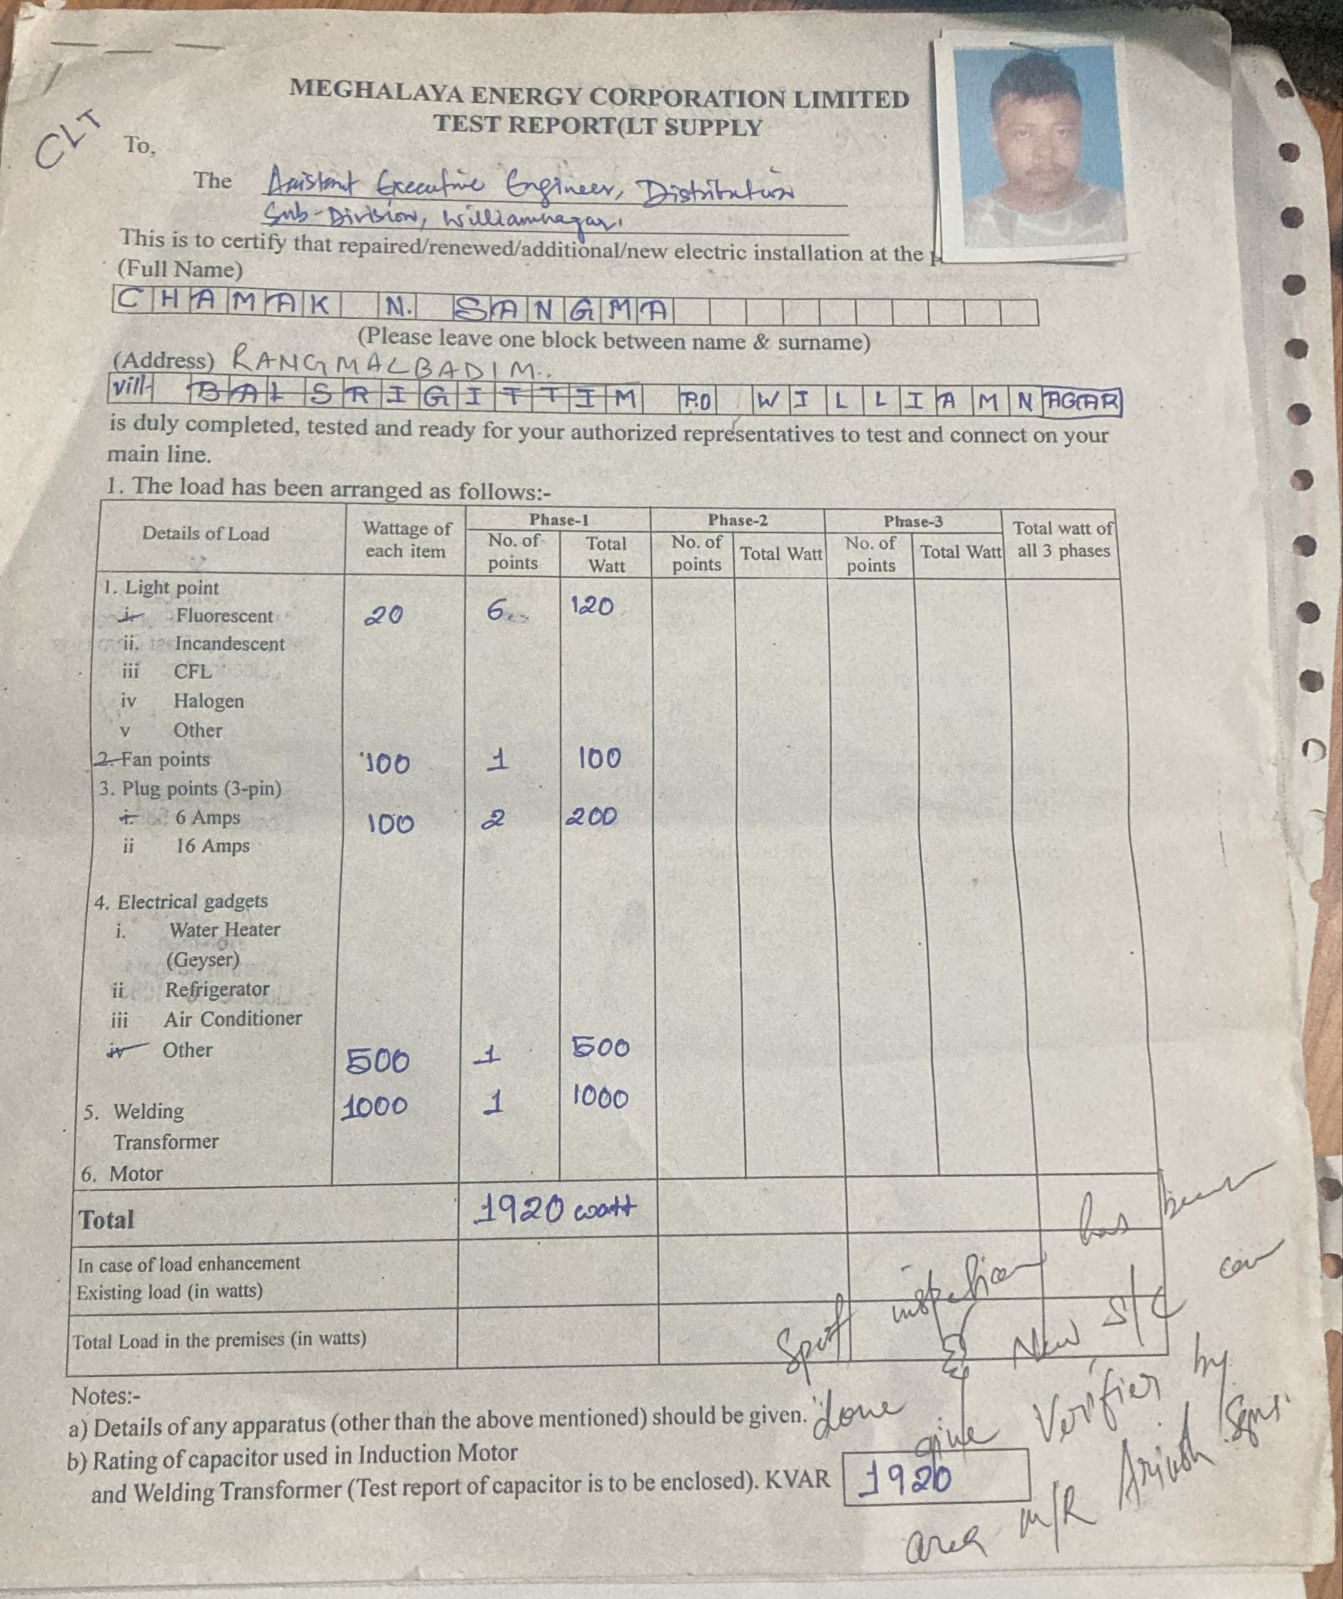 CLT
MEGHALAYA ENERGY CORPORATION LIMITED
TEST REPORT(LT SUPPLY
To,
The Assistant Executive Engineer, Distribution
Sub-Division, Williamnagar.
This is to certify that repaired/renewed/additional/new electric installation at the
(Full Name)
CHAMAK N. SANGMA
(Please leave one block between name & surname)
(Address) RANGMALBADIM..
Vill- BALSRIGITTIM P.O WILLIAMNAGAR
is duly completed, tested and ready for your authorized representatives to test and connect on your
main line.
1. The load has been arranged as follows:-
Details of Load Wattage of each item Phase-1 Phase-2 Phase-3 Total watt of all 3 phases
No. of points Total Watt No. of points Total Watt No. of points Total Watt
1. Light point
i. Fluorescent 20 6 120
ii. Incandescent
iii CFL
iv Halogen
v Other
2. Fan points 100 1 100
3. Plug points (3-pin)
i. 6 Amps 100 2 200
ii 16 Amps
4. Electrical gadgets
i. Water Heater
(Geyser)
ii Refrigerator
iii Air Conditioner
iv Other 500 1 500
5. Welding 1000 1 1000
Transformer
6. Motor
Total 1920 watt
In case of load enhancement
Existing load (in watts)
Total Load in the premises (in watts)
Notes:-
a) Details of any apparatus (other than the above mentioned) should be given.
b) Rating of capacitor used in Induction Motor
and Welding Transformer (Test report of capacitor is to be enclosed). KVAR 1920
Spot inspection has been
done New S/C can
give Verifier by
area m/R